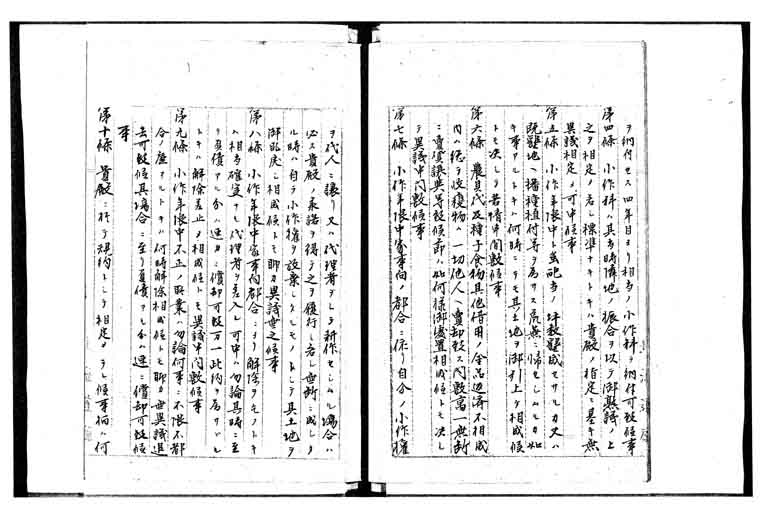 ヲ納付セス四年目ヨリ相当ノ小作料ヲ納付可致候事
第四條　小作料ハ其当時隣地ノ振合ヲ以テ御熟議ノ上
之ヲ相定メ若シ標準ナキトキハ貴殿ノ指定ニ基キ無
異議相定メ可申候事
第五條　小作年限中ト雖配当ノ坪数墾成セサルカ又ハ
既墾地ヘ播種植付等ヲ為サス荒蕪ニ帰セシムルカ如
キ事アルトキハ何時ニテモ其土地ヲ御引上ケ相成候
トモ決シテ苦情申間敷候事
第六條　農具代及種子食物其他借用ノ金品返済不相成
内ハ総テ収穫物ハ一切他人ヘ賣却致ス間敷萬一無断
ニ賣買譲與等致候節ハ如何様御處置相成候トモ決シ
テ異議申間敷候事
第七條　小作年限中家事向ノ都合ニ依リ自分ノ小作権
ヲ代人ニ譲リ又ハ代理者ヲシテ耕作セシムル場合ハ
必ス貴殿ノ承諾ヲ得テ之ヲ履行シ若シ無断ニ成シタ
ル時ハ自ラ小作権ヲ放棄シタルモノトシテ其土地ヲ
御取戻シ相成候トモ聊カ異議無之候事
第八條　小作年限中家事向都合ニヨリ解除ヲセントキ
ハ相当確実ナル代理者ヲ差入レ可申ハ勿論其時ニ至
リ負債アル分ハ速カニ償却可致万一此約ヲ為サヽル
トキハ解除差止メ相成候トモ異議申間敷候事
第九條　小作年限中不正ノ所業ハ勿論何事ニ不限不都
合ノ廉アルトキハ何時解除相成候トモ聊カ無異議退
去可致候其場合ニ至リ負債アル分ハ速ニ償却可致候
事
第十條　貴殿ニ於テ規約トシテ相定メラレ候事柄ハ何